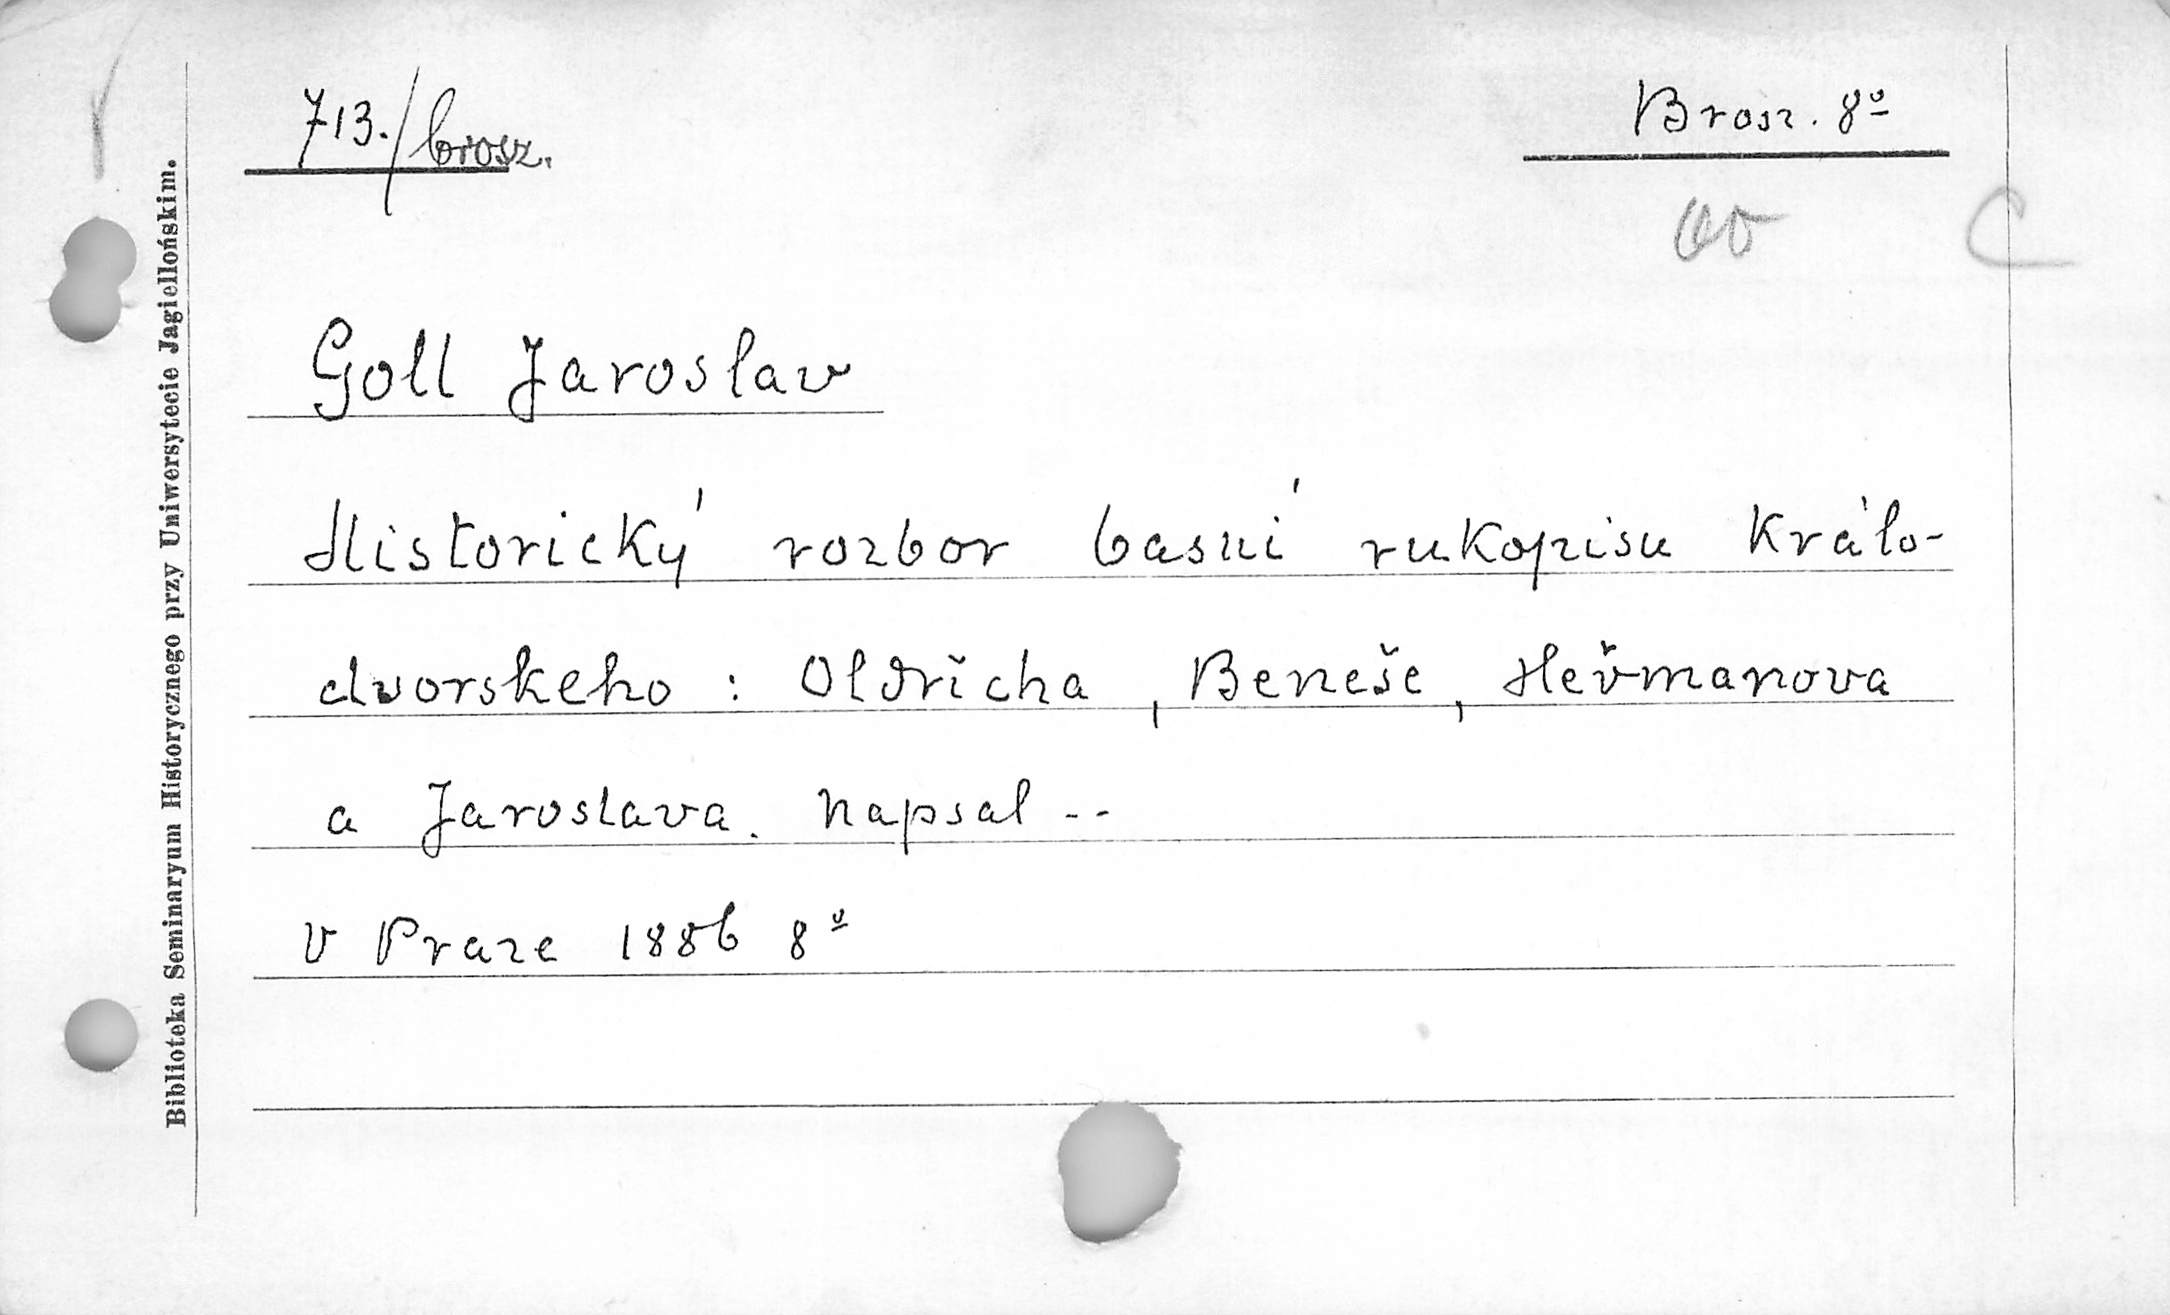 713./brosz.
Brosz. 8º
C
Goll Jaroslav
Historický rozbor basní rukopisu Králo-
dvorskeho : Oldřicha , Beneše , Heřmanova
a Jaroslava . Napsal --
V Praze 1886 8º
Biblioteka Seminaryum Historycznego przy Uniwersytecie Jagiellońskim.